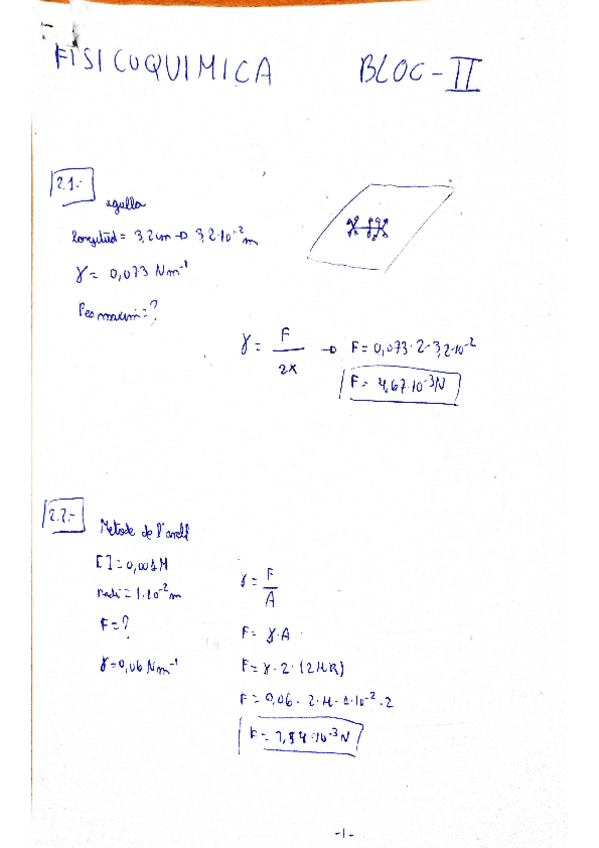 FISICOQUIMICA BLOC-II
2.1.-
agulla
longitud = 3,2 cm → 3,2·10⁻² m
γ = 0,073 Nm⁻¹
Pes maxim = ?
γ = F / 2x → F = 0,073·2·3,2·10⁻²
F = 4,67·10⁻³ N
2.2.-
Metode de l'anell
[ ] = 0,001M
radi = 1·10⁻² m
F = ?
γ = 0,06 Nm⁻¹
γ = F / A
F = γ·A
F = γ·2·(2πR)
F = 0,06·2·π·1·10⁻²·2
F = 7,54·10⁻³ N
-1-